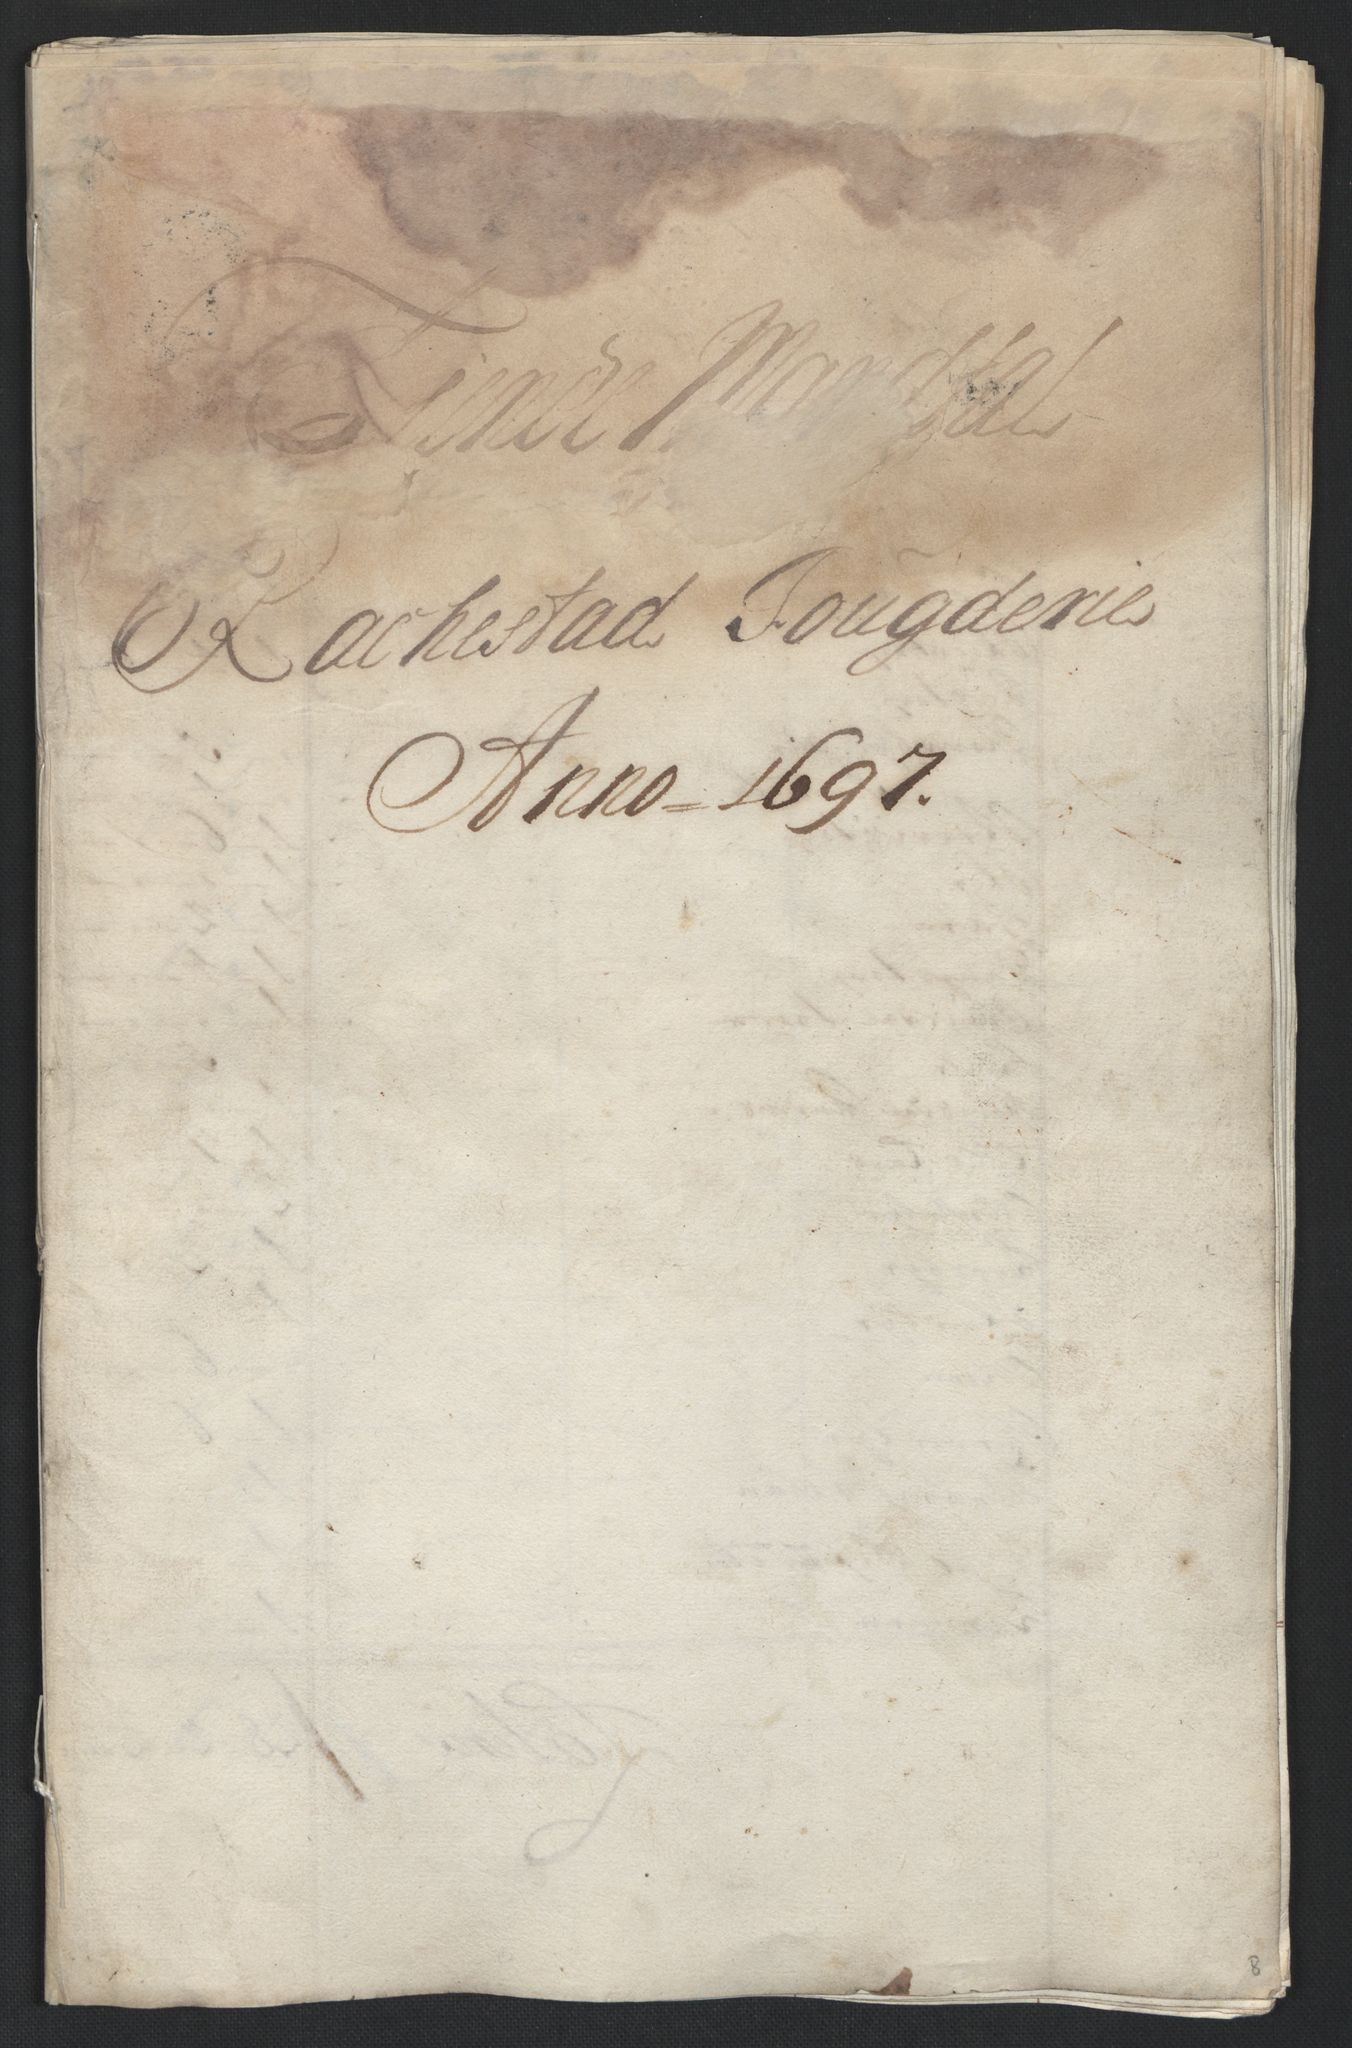 Tiende Mandtal
Rachestad Fougderie
Anno = 1697.
8